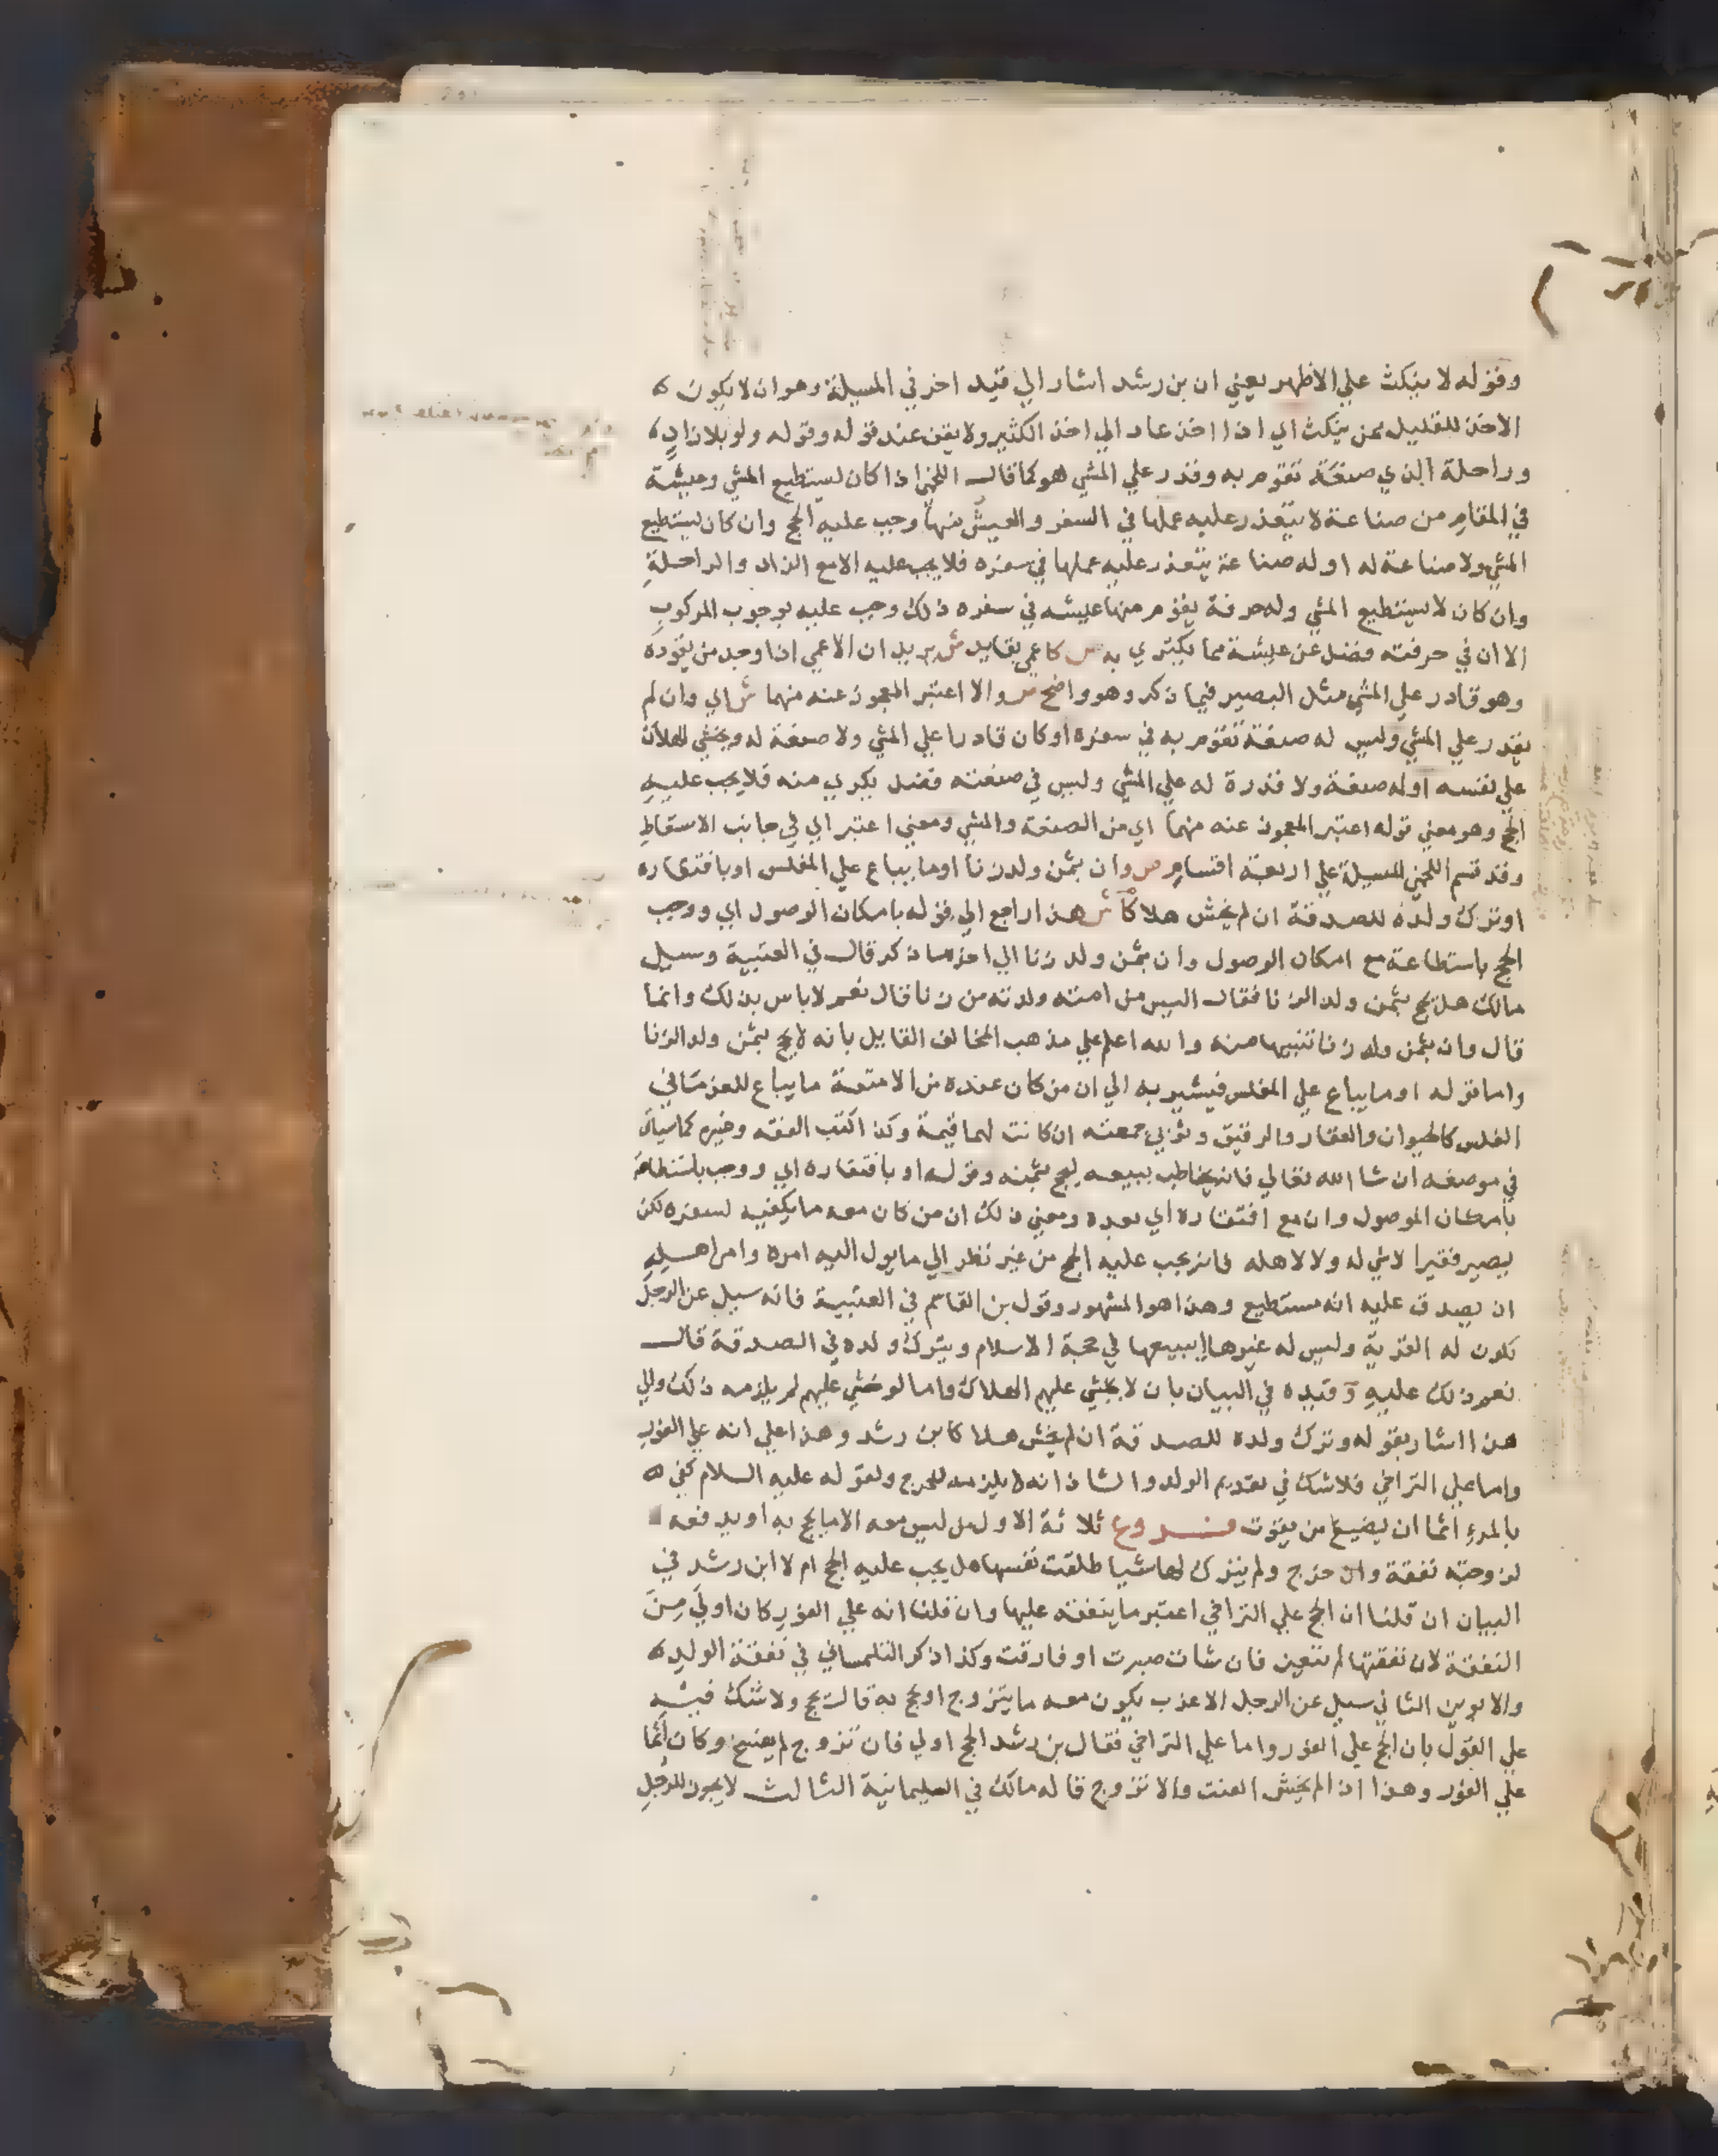 وقوله لا ينكث علي الاظهر يعني ان بن رشد اشار الي قيد اخر في المسيلة وهو ان لا يكون
الاخذ للقليل ممن ينكث اي اذا اخذ عاد الي اخذ الكثير ولا يقف عند قوله وقوله ولو بلا زادٍ
وراحلة الذي صنعَة تقوم به وقدر علي المشي هو كما قال اللخمي اذا كان يستطيع المشي وعيشَة
في المقام من صناعة لا يتعذر عليه عملها في السفر والعيش منها وجب عليه الحج وان كان يستطيع
المشي ولا صناعة له او له صناعة يتعذر عليه عملها في سفره فلا يجب عليه الا مع الزاد والراحلةِ
وان كان لا يستطيع المشي وله حرفة يقوم منها عيشه في سفره ذلك وجب عليه بوجوب المركوبِ
الا ان في حرفته فضل عن عيشة مما يكتري به ص كاعمي بقايد ش يريد ان الاعمي اذا وجد من يقوده
وهو قادر علي المشي مثل البصير فيما ذكر وهو واضح ص والا اعتبر المعجوز عنه منهما ش اي وان لم
يقدر علي المشي وليس له صنعة تقوم به في سفره او كان قادرا علي المشي ولا صنعة له ويخشي الهلاك
علي نفسه او له صنعة ولا قدرة له علي المشي وليس في صنعته فضل يكري منه فلا يجب عليهِ
الحج وهو معني قوله اعتبر المعجوز عنه منهما اي من الصنعة والمشي ومعني اعتبر اي في جانب الاسقاطِ
وقد قسم اللخمي المسيلة علي اربعة اقسامٍ ص وان بثمن ولد زنا او ما يباع علي المفلس او بافتقاره
او ترك ولده للصدقة ان لم يخش هلاكا ش هذا راجع الي قوله بامكان الوصول اي ووجب
الحج باستطاعة مع امكان الوصول وان بثمن ولد زنا الي اخر ما ذكر قال في العتبية وسيل
مالك هل يحج بثمن ولد الزنا فقال اليس من امته ولدته من زنا قال نعم لا باس بذلك وانما
قال وان بثمن ولد زنا تنبيها منه والله اعلم علي مذهب المخالف القايل بانه لا يحج بثمن ولد الزنا
واما قوله او ما يباع علي المفلس فيشير به الي ان من كان عنده من الامتعة ما يباع للغرما في
الفلس كالحيوان والعقار والرقيق وثوبي جمعته ان كانت لهما قيمة وكذا كتب الفقه وغيره كما سياتي
في موضعه ان شا الله تعالي فانه يخاطب ببيعه ليحج بثمنه وقوله او بافتقاره اي ووجب باستطاعة
بامكان الوصول وان مع افتقاره اي بعده ومعني ذلك ان من كان معه ما يكفيه لسفره لكن
يصير فقيرا لا شي له ولا لاهله فانه يجب عليه الحج من غير نظر الي ما يول اليه امره وامر اهلهِ
ان يصدق عليه انه مستطيع وهذا هو المشهور وقول بن القاسم في العتبية فانه سيل عن الرجل
تكون له القرية وليس له غيرها ايبيعها في حجة الاسلام ويترك ولده في الصدقة قال
نعم ذلك عليهِ وقيده في البيان بان لا يخشي عليهم الهلاك واما لو خشي عليهم لم يلزمه ذلك والي
هذا اشار بقوله وترك ولده للصدقة ان لم يخش هلاكا بن رشد وهذا علي انه علي الفورِ
واما علي التراخي فلا شك في تقديم الولد والشاذ انه لا يلزمه الخروج ولقوله عليه السلام كفي
بالمرءِ اثما ان يضيع من يقوت فــروع ثلاثة الاول من ليس معه الا ما يحج به او يدفعه
لزوجته نفقة وان خرج ولم يترك لها شيا طلقت نفسها هل يجب عليه الحج ام لا ابن رشد في
البيان ان قلنا ان الحج علي التراخي اعتبر ما ينفقه عليها وان قلنا انه علي الفورِ كان اولي مِن
النفقة لان نفقتها لم تتعين فان شات صبرت او فارقت وكذا ذكر التلمساني في نفقة الولدِ
والابوين الثاني سيل عن الرجل الاعزب يكون معه ما يتزوج او يحج به قال يحج ولا شك فيه
علي القول بان الحج علي الفور واما علي التراخي فقال بن رشد الحج اولي فان تزوج لم يفسخ وكان اثما
علي الفور وهذا اذا لم يخش العنت والا تزوج قاله مالك في السليمانية الثالث لا يجوز للرجلِ